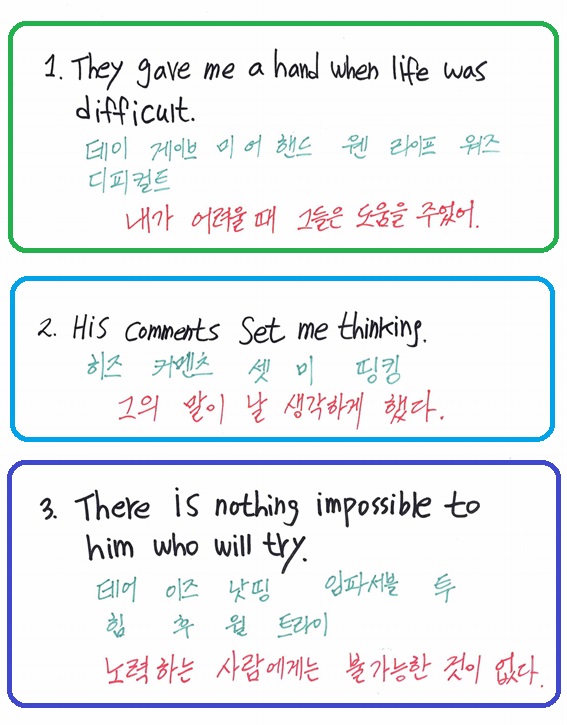 1. They gave me a hand when life was
difficult.
데이 게이브 미 어 핸드 웬 라이프 워즈
디피컬트
내가 어려울 때 그들은 도움을 주었어.
2. His comments Set me thinking.
히즈 커멘츠 셋 미 띵킹
그의 말이 날 생각하게 했다.
3. There is nothing impossible to
him who will try.
데어 이즈 낫띵 임파서블 투
힘 후 윌 트라이
노력하는 사람에게는 불가능한 것이 없다.